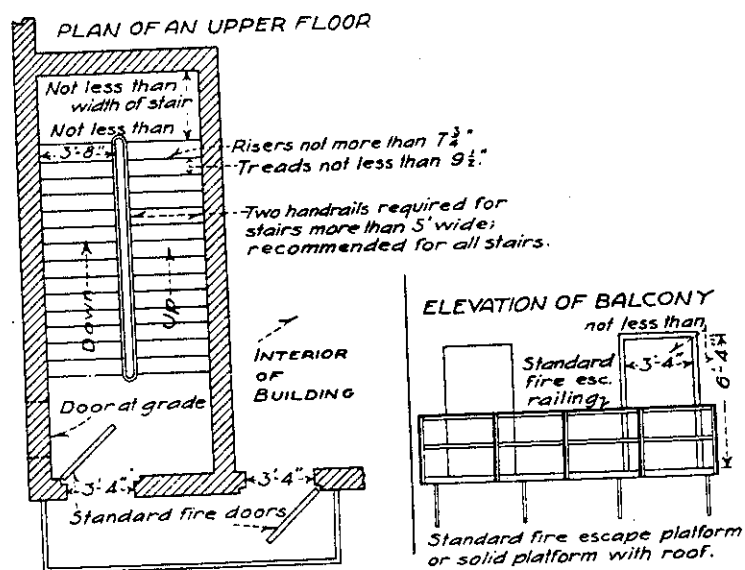 PLAN OF AN UPPER FLOOR
Not less than
width of stair
Not less than
3'-8"
Risers not more than 7 3/4"
Treads not less than 9 1/2"
Two handrails required for
stairs more than 5' wide;
recommended for all stairs.
Down
Up
INTERIOR
OF
BUILDING
Door at grade
3'-4"
3'-4"
Standard fire doors
ELEVATION OF BALCONY
not less than
Standard
fire esc.
railing
3'-4"
6'-4"
Standard fire escape platform
or solid platform with roof.